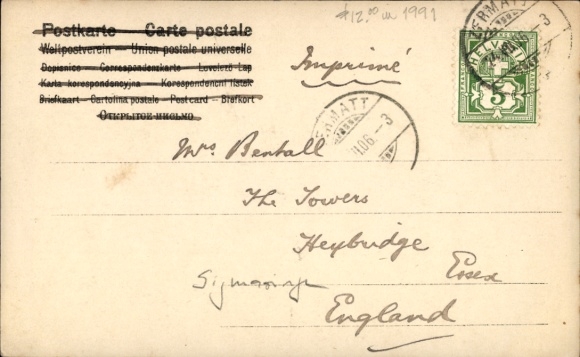 $12.00 in 1991
Postkarte Carte postale
Weltpostverein – Union postale universelle
Dopisnice – Correspondenzkarte – Levelező Lap
Karta korespondencyjna – Korespondenční lístek
Briefkaart – Cartolina postale – Post card – Brefkort
Открытое письмо
Imprimé
ZERMATT
HELVETIA
5
ZERMATT
06 – 3
Mrs Bentall
The Towers
Heybridge
Essex
England